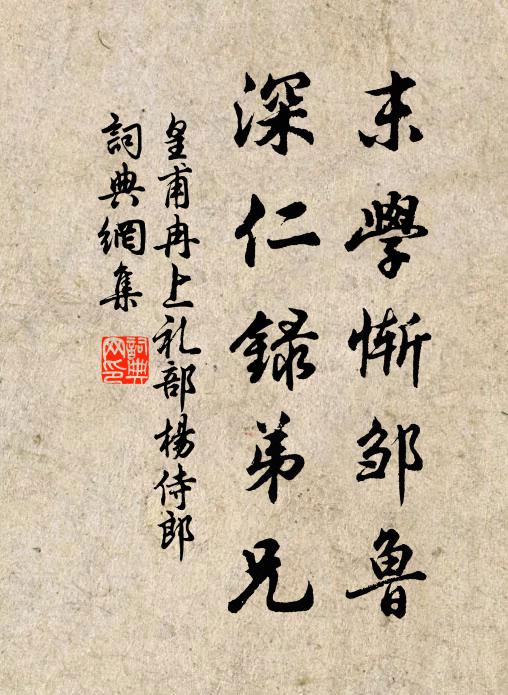 末學慚邹魯
深仁錄弟兄
皇甫冉上礼部楊侍郎
詞典網集
詞典
网印